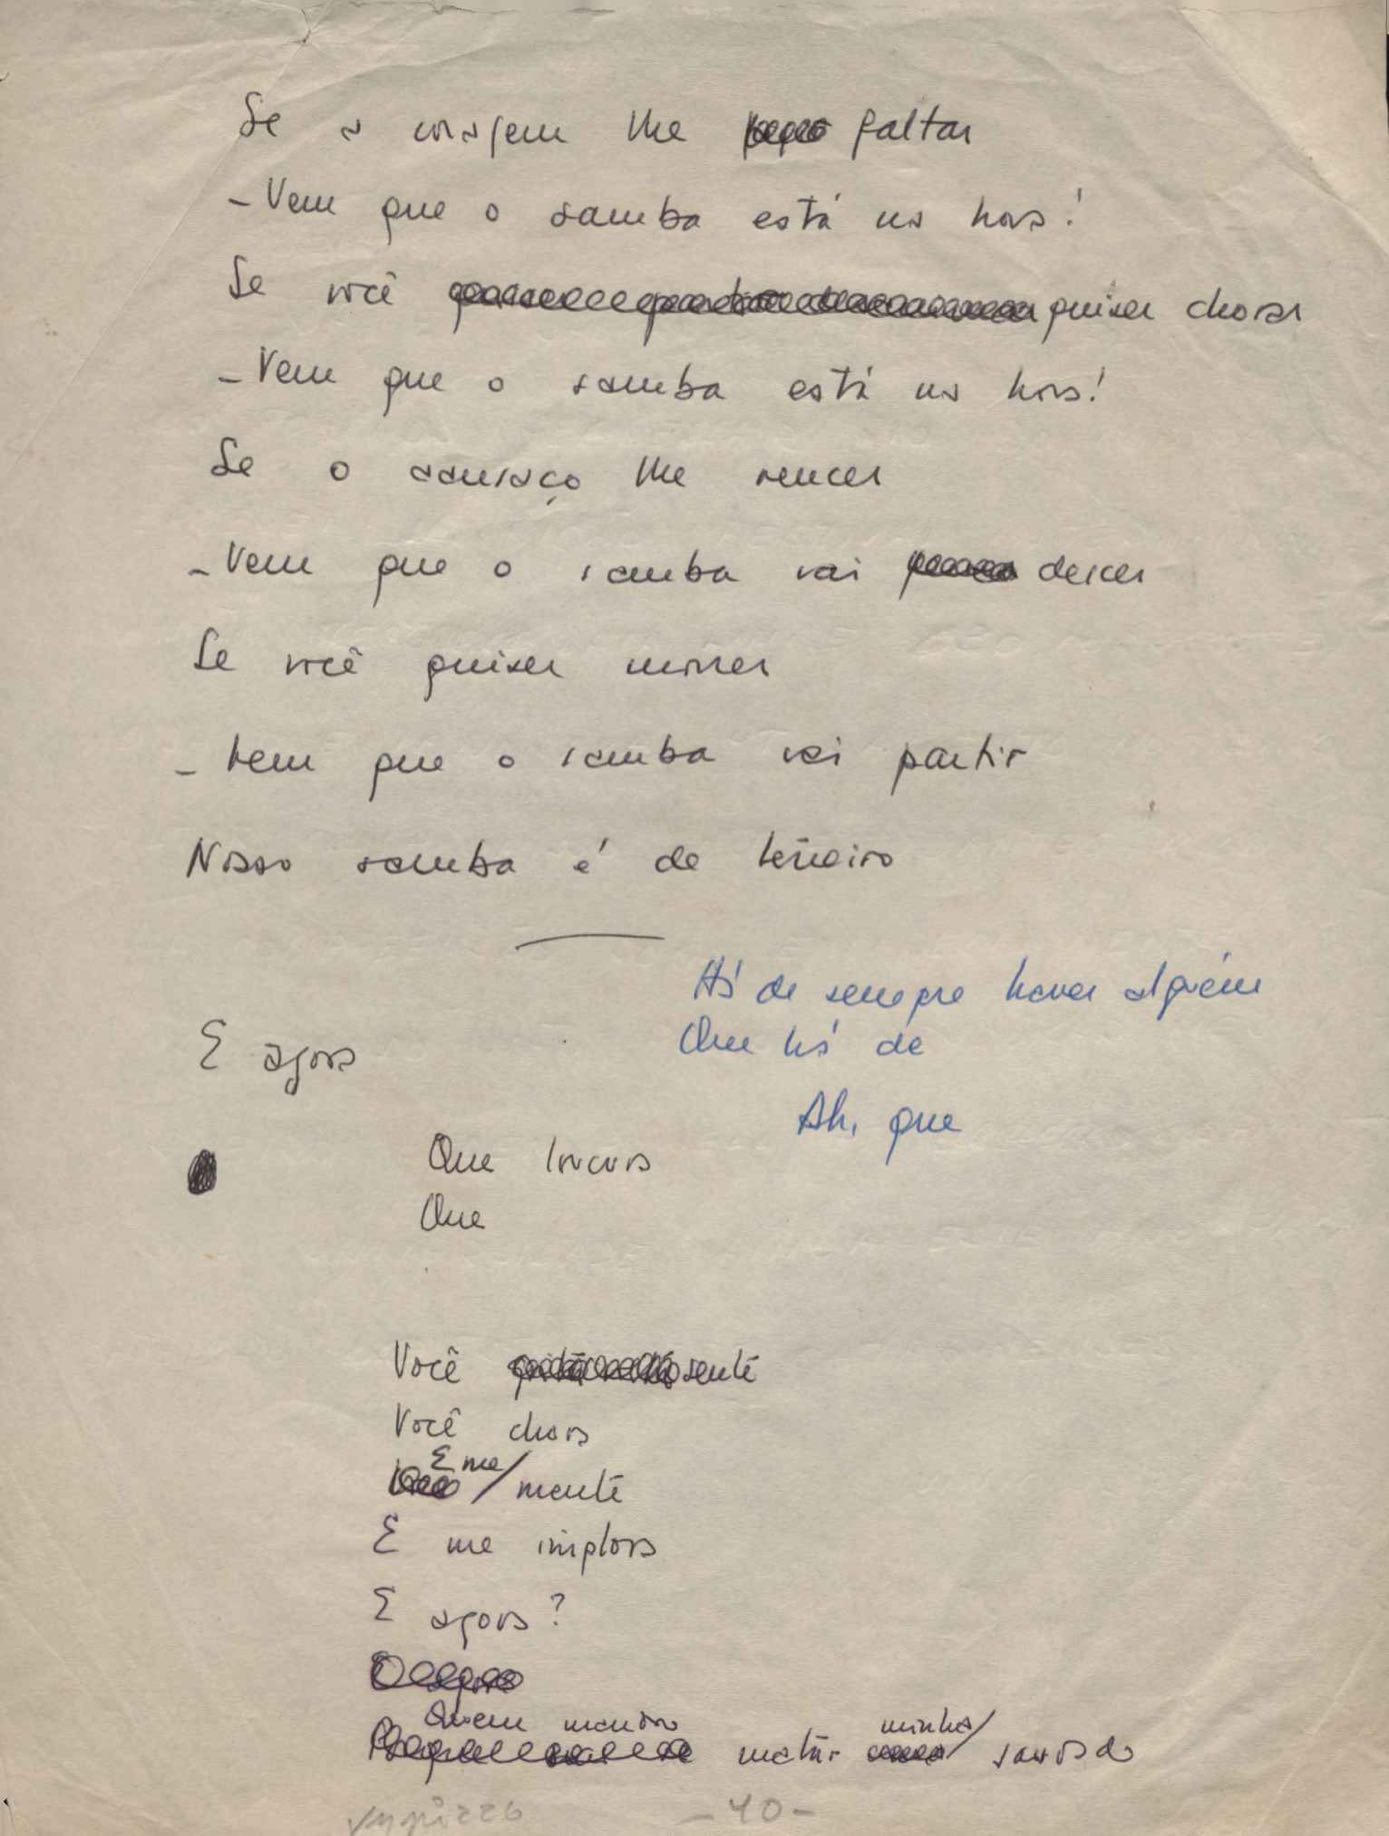 Se a coragem lhe faltar
- Vem que o samba está na hora!
Se você quiser chorar
- Vem que o samba está na hora!
Se o cansaço lhe vencer
- Vem que o samba vai descer
Se você quiser morrer
- Vem que o samba vai partir
Nosso samba é de terreiro
Há de sempre haver alguém
Que há de
E agora
Ah, que
Que loucura
Que
Você sente
Você chora
E me
mente
E me implora
E agora?
Quem mandou minha
matar saudade
- 40 -